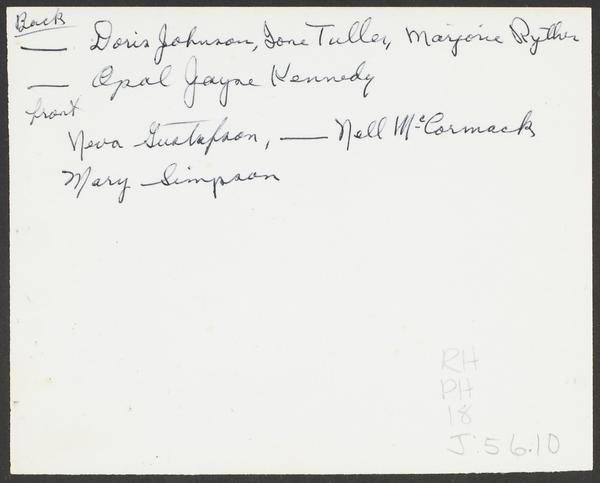 Back
— Doris Johnson, Ione Tuller, Marjorie Ryther
— Opal Jayne Kennedy
front
Neva Gustafson, — Nell McCormack
Mary Simpson
RH
PH
18
J:56.10